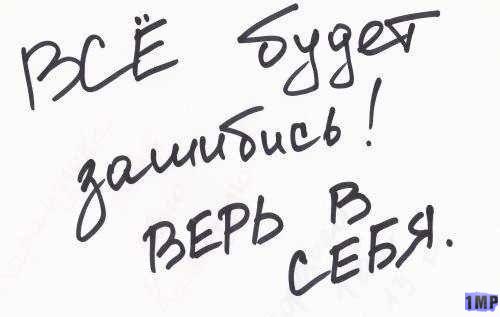 ВСЁ будет
зашибись!
ВЕРЬ В
СЕБЯ.
1MP